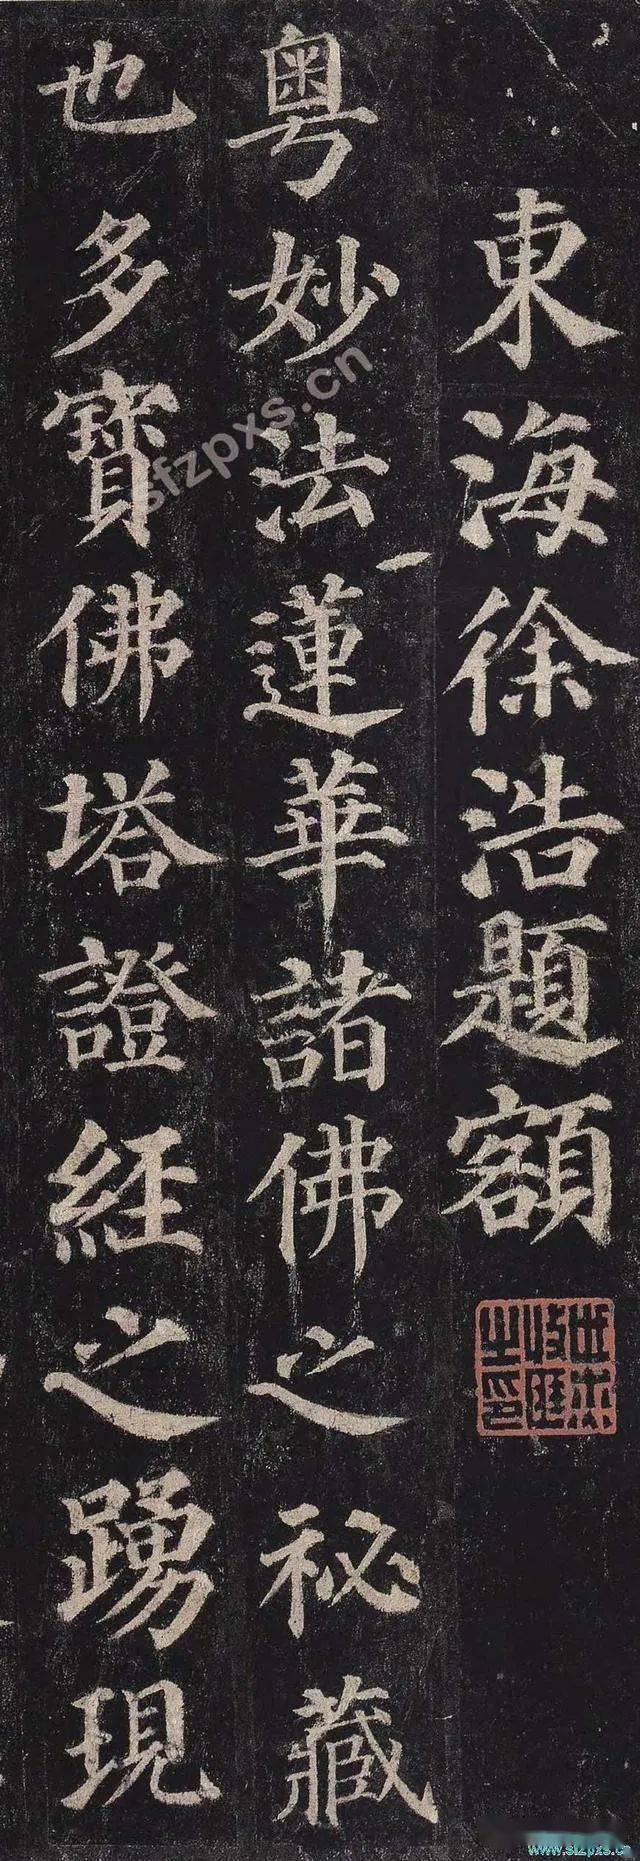 東海徐浩題額
粤妙法蓮華諸佛之祕藏
也多寶佛塔證經之踴現
sfzpxs.cn
www.sfzpxs.cn